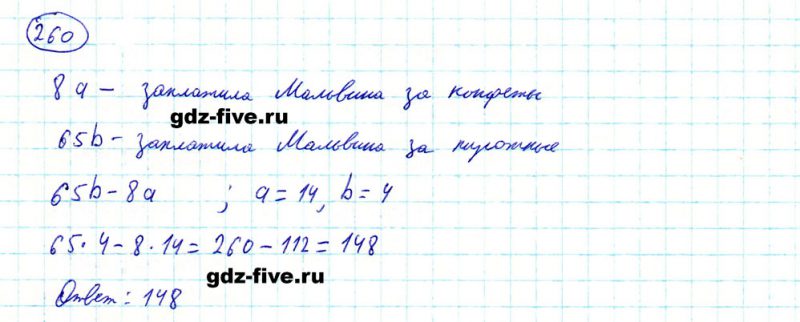 260
8a – заплатила Мальвина за конфеты
gdz-five.ru
65b – заплатила Мальвина за пирожные
65b – 8a ; a = 14, b = 4
65 · 4 – 8 · 14 = 260 – 112 = 148
gdz-five.ru
Ответ: 148